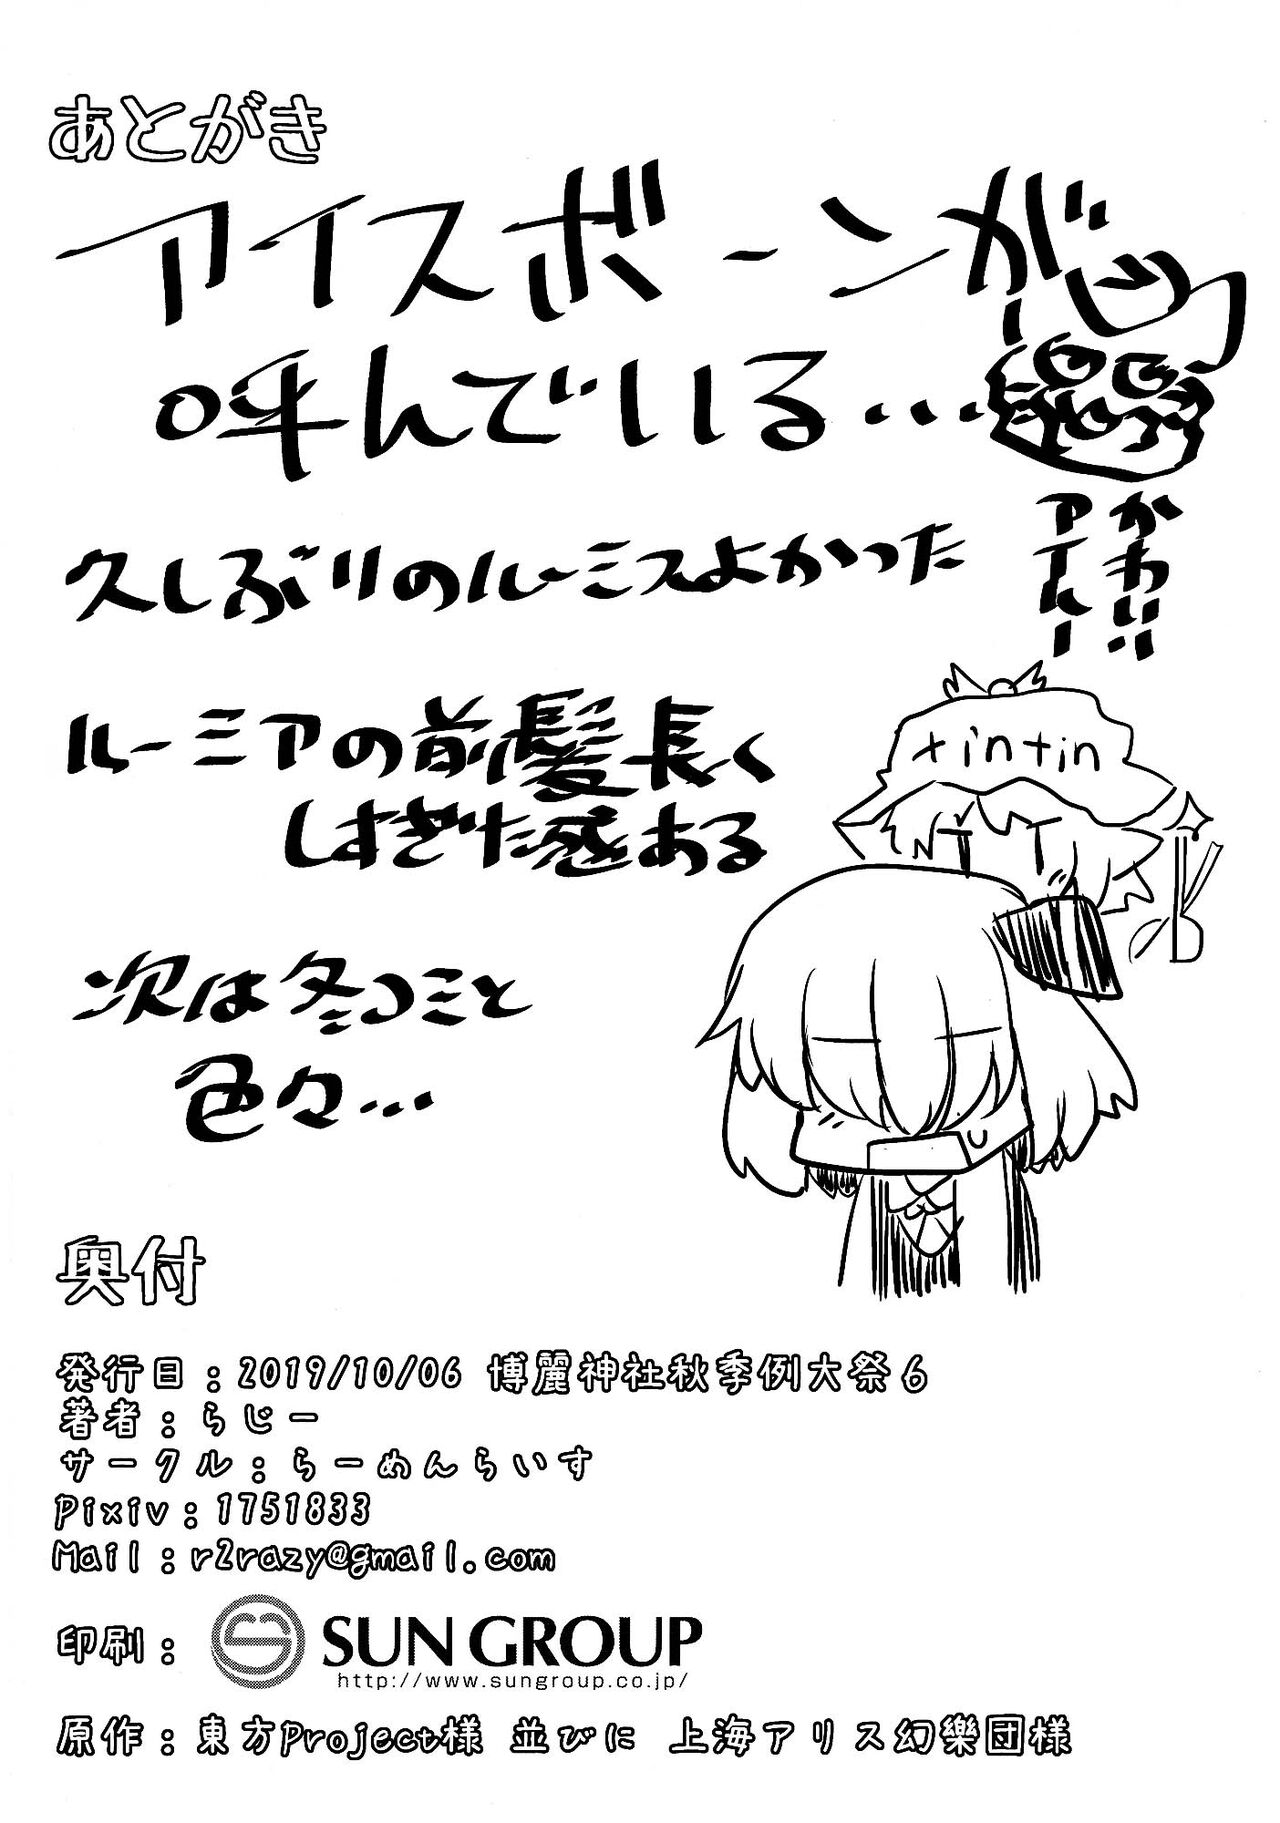 あとがき
アイスボーンが
呼んでいる…
久しぶりのルーミスよかった
かわいい
アイルー
ルーミアの前髪長く
しすぎた感ある
tintin
次は冬コミと
色々…
奥付
発行日：2019/10/06 博麗神社秋季例大祭6
著者：らじー
サークル：らーめんらいす
Pixiv：1751833
Mail：r2razy@gmail.com
印刷： SUN GROUP
http://www.sungroup.co.jp/
原作：東方Project様 並びに 上海アリス幻樂団様